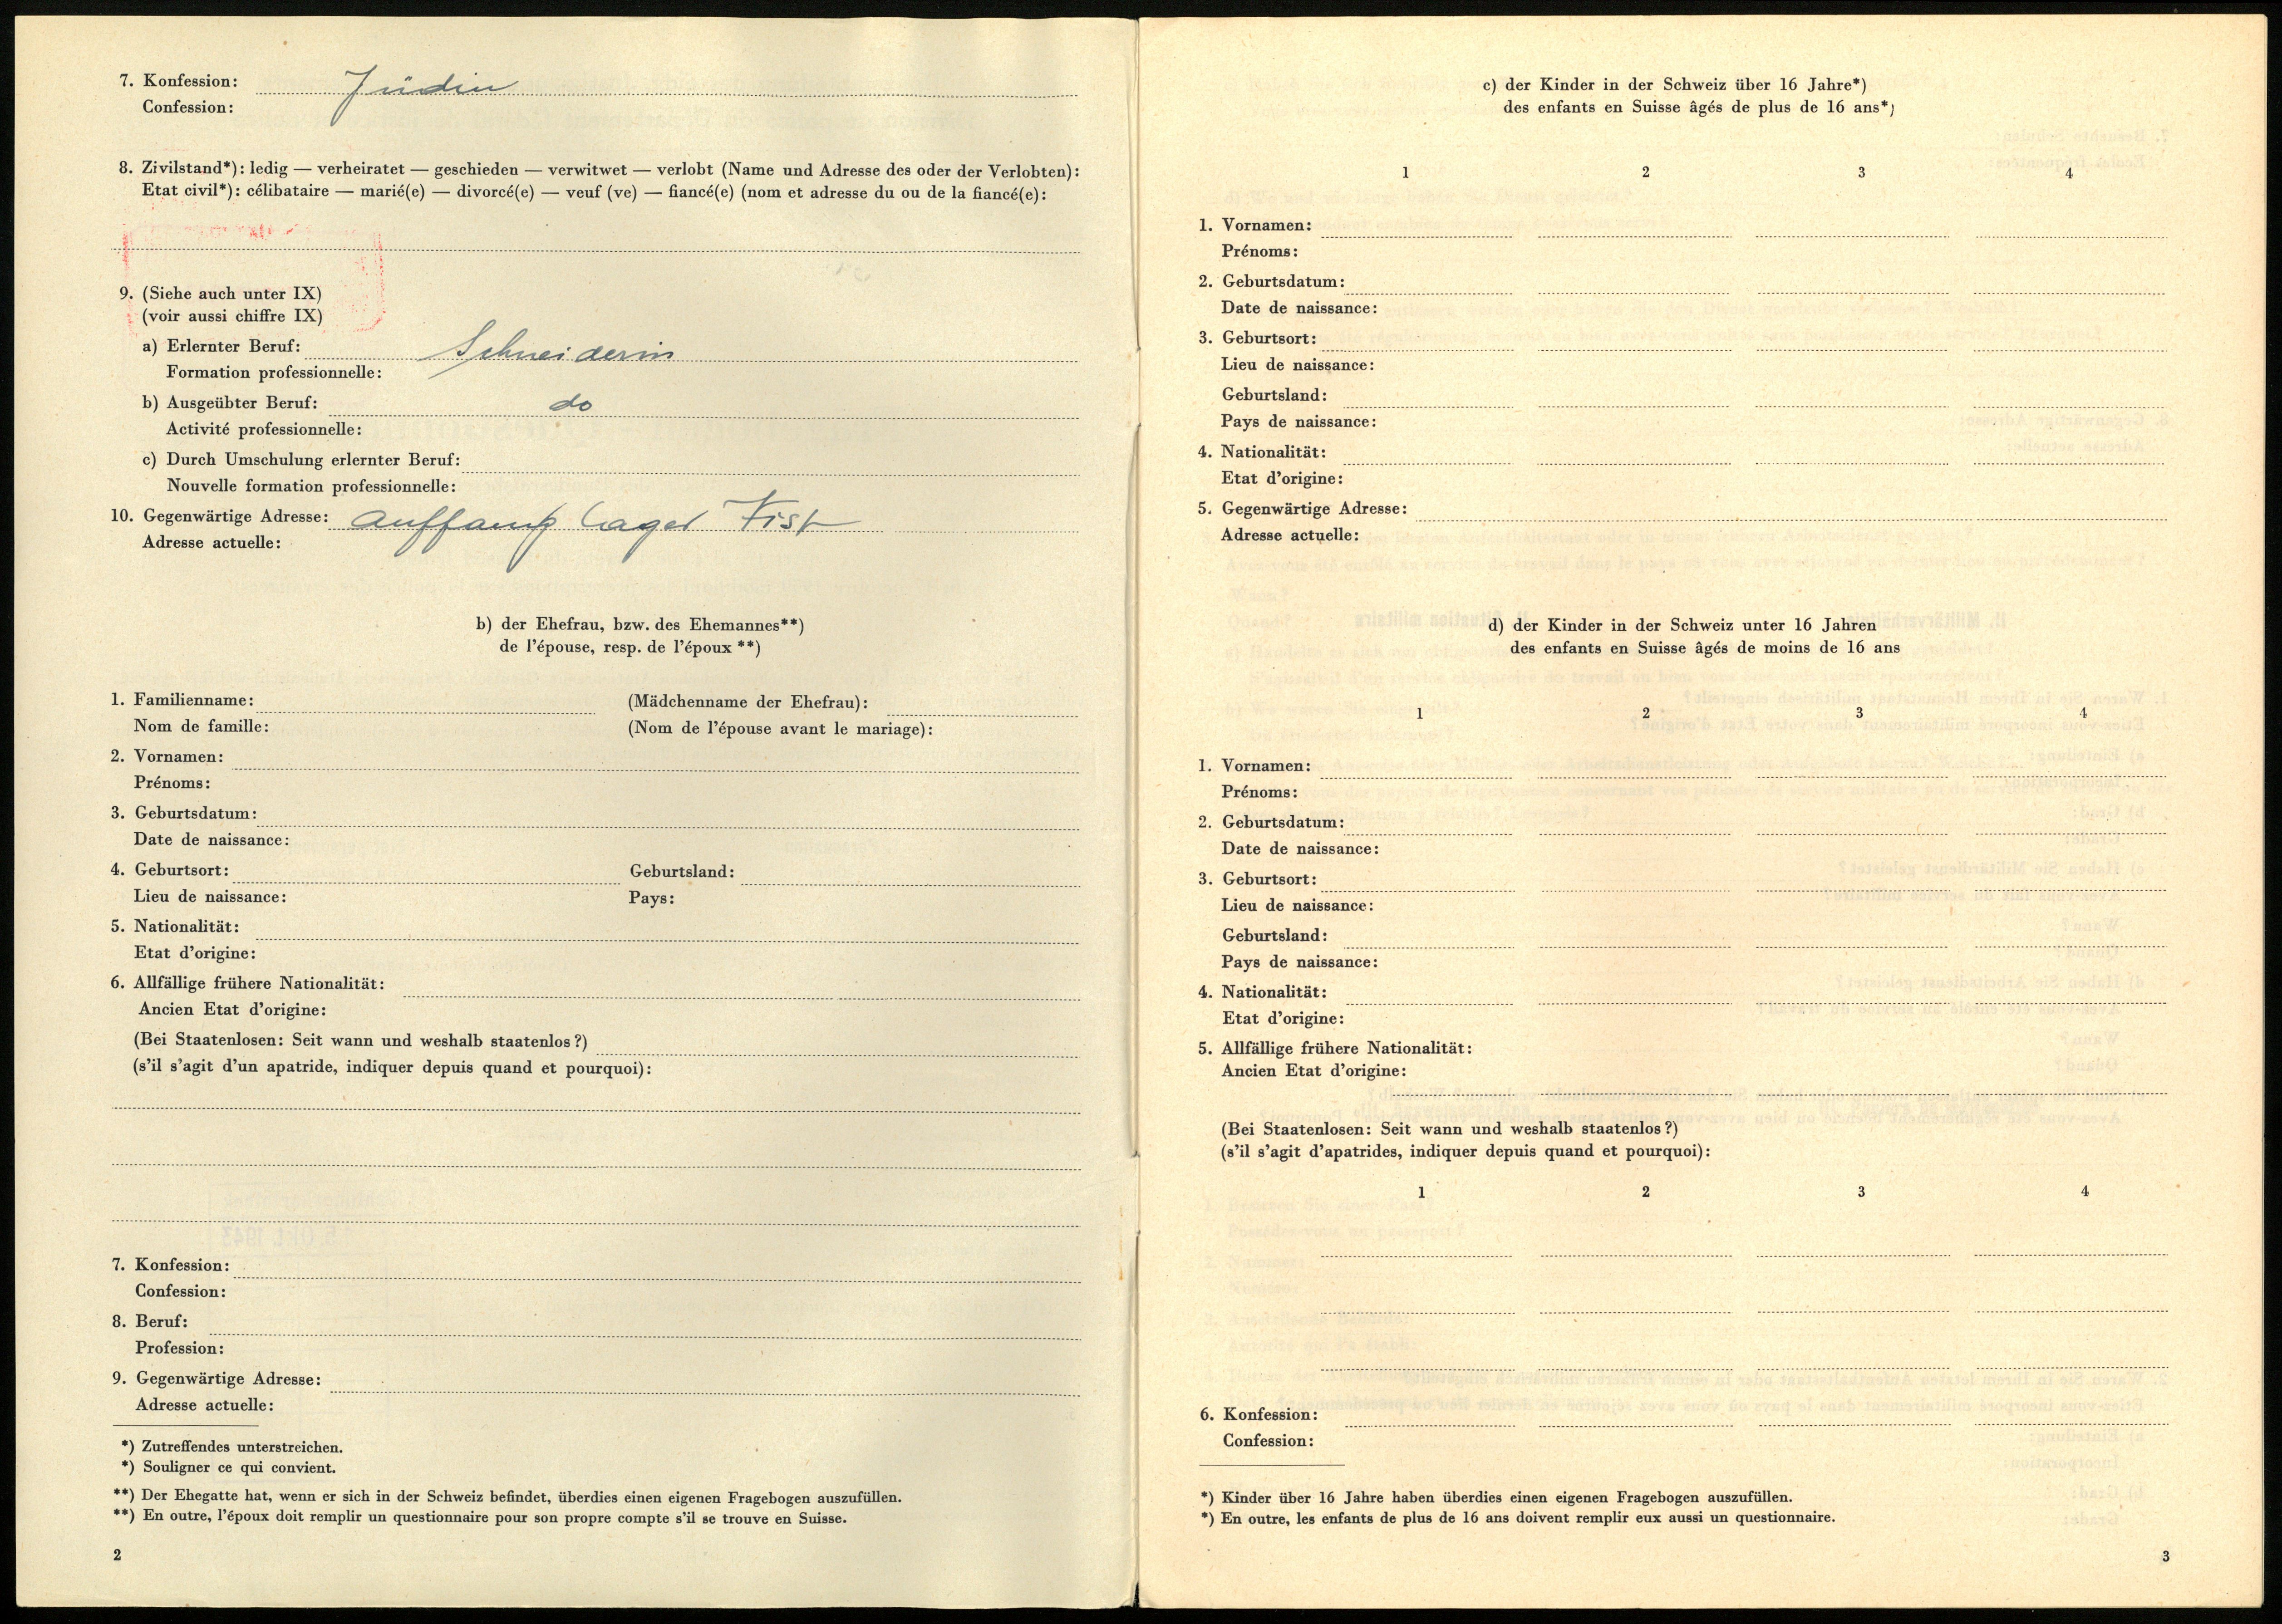 7. Konfession: Jüdin
Confession:
8. Zivilstand*): ledig — verheiratet — geschieden — verwitwet — verlobt (Name und Adresse des oder der Verlobten):
Etat civil*): célibataire — marié(e) — divorcé(e) — veuf (ve) — fiancé(e) (nom et adresse du ou de la fiancé(e):
9. (Siehe auch unter IX)
(voir aussi chiffre IX)
a) Erlernter Beruf: Schneiderin
Formation professionnelle:
b) Ausgeübter Beruf: do
Activité professionnelle:
c) Durch Umschulung erlernter Beruf:
Nouvelle formation professionnelle:
10. Gegenwärtige Adresse: Auffang Lager
Adresse actuelle:
b) der Ehefrau, bzw. des Ehemannes**)
de l'épouse, resp. de l'époux **)
1. Familienname: (Mädchenname der Ehefrau):
Nom de famille: (Nom de l'épouse avant le mariage):
2. Vornamen:
Prénoms:
3. Geburtsdatum:
Date de naissance:
4. Geburtsort: Geburtsland:
Lieu de naissance: Pays:
5. Nationalität:
Etat d'origine:
6. Allfällige frühere Nationalität:
Ancien Etat d'origine:
(Bei Staatenlosen: Seit wann und weshalb staatenlos?)
(s'il s'agit d'un apatride, indiquer depuis quand et pourquoi):
7. Konfession:
Confession:
8. Beruf:
Profession:
9. Gegenwärtige Adresse:
Adresse actuelle:
*) Zutreffendes unterstreichen.
*) Souligner ce qui convient.
**) Der Ehegatte hat, wenn er sich in der Schweiz befindet, überdies einen eigenen Fragebogen auszufüllen.
**) En outre, l'époux doit remplir un questionnaire pour son propre compte s'il se trouve en Suisse.
2
c) der Kinder in der Schweiz über 16 Jahre*)
des enfants en Suisse âgés de plus de 16 ans*)
1 2 3 4
1. Vornamen:
Prénoms:
2. Geburtsdatum:
Date de naissance:
3. Geburtsort:
Lieu de naissance:
Geburtsland:
Pays de naissance:
4. Nationalität:
Etat d'origine:
5. Gegenwärtige Adresse:
Adresse actuelle:
d) der Kinder in der Schweiz unter 16 Jahren
des enfants en Suisse âgés de moins de 16 ans
1 2 3 4
1. Vornamen:
Prénoms:
2. Geburtsdatum:
Date de naissance:
3. Geburtsort:
Lieu de naissance:
Geburtsland:
Pays de naissance:
4. Nationalität:
Etat d'origine:
5. Allfällige frühere Nationalität:
Ancien Etat d'origine:
(Bei Staatenlosen: Seit wann und weshalb staatenlos?)
(s'il s'agit d'apatrides, indiquer depuis quand et pourquoi):
1 2 3 4
6. Konfession:
Confession:
*) Kinder über 16 Jahre haben überdies einen eigenen Fragebogen auszufüllen.
*) En outre, les enfants de plus de 16 ans doivent remplir eux aussi un questionnaire.
3